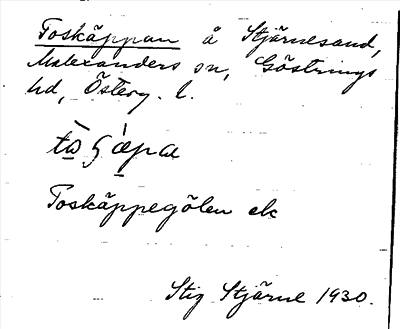 Toskäppan å Stjärnesand,
Malexanders sn, Göstrings
hd, Österg. l.
Toskäppegölen etc
Stig Stjärne 1930.